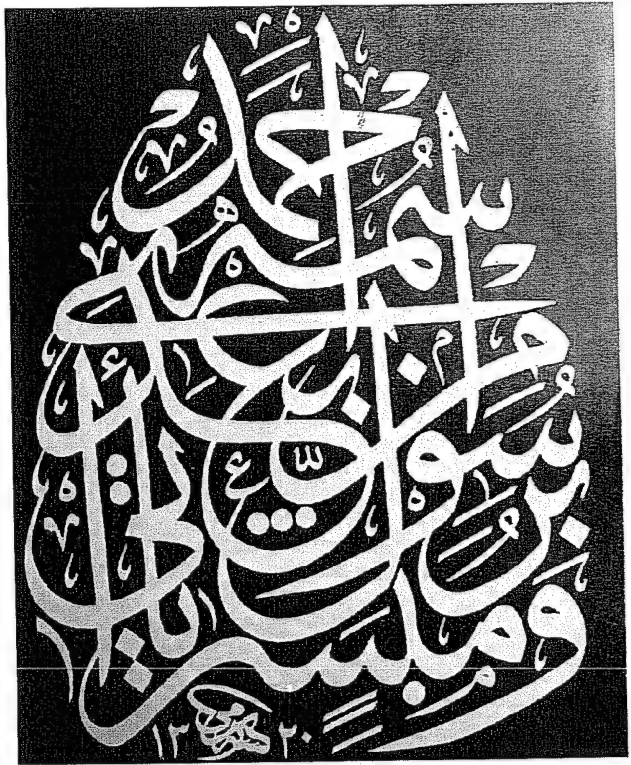 ومبشرا برسول ياتي من بعدي اسمه احمد
١٣٢٠